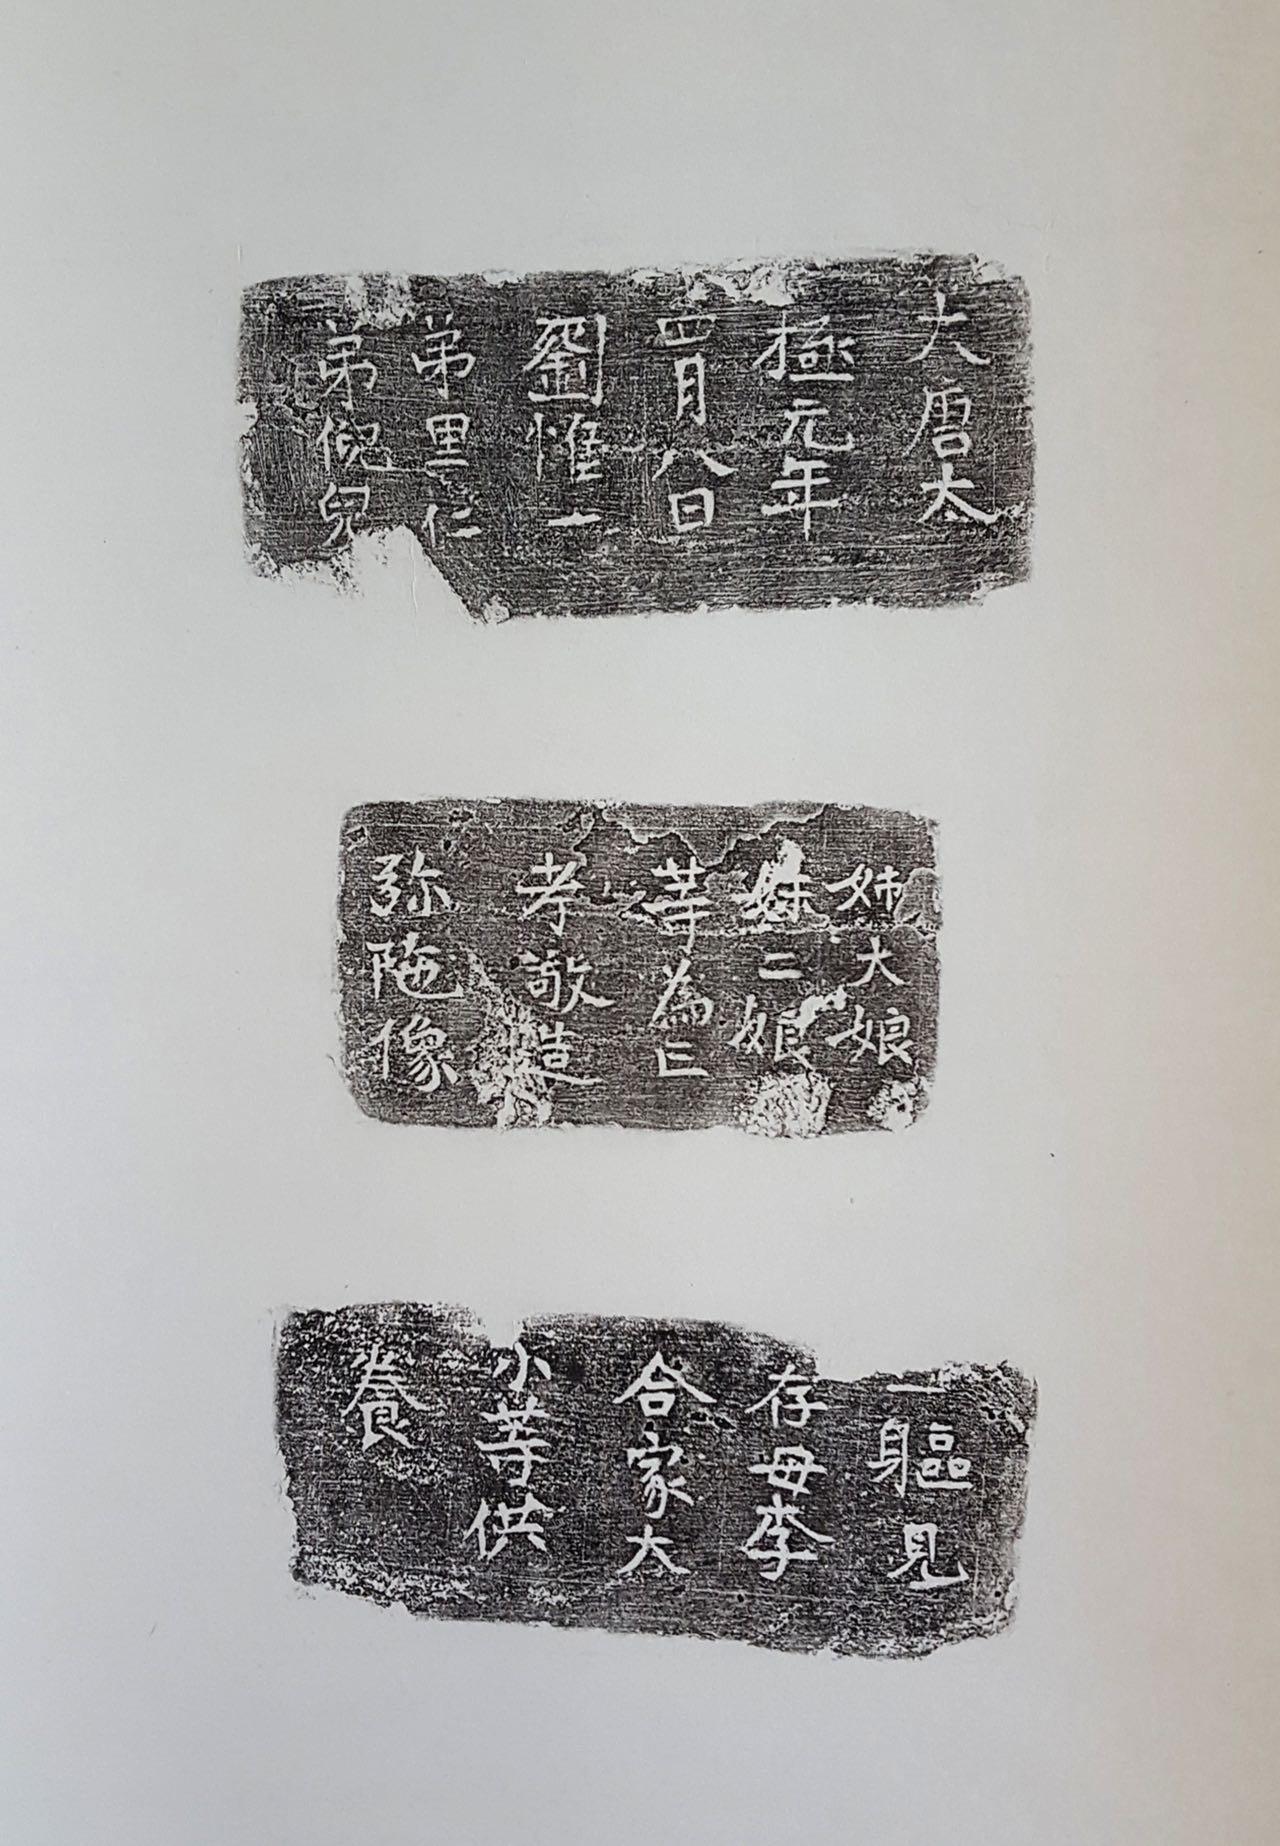 大唐太
極元年
四月八日
劉惟一
弟里仁
弟倪兒
姉大娘
妹二娘
等為亡
考敬造
弥陁像
一軀見
存母李
合家大
小等供
養